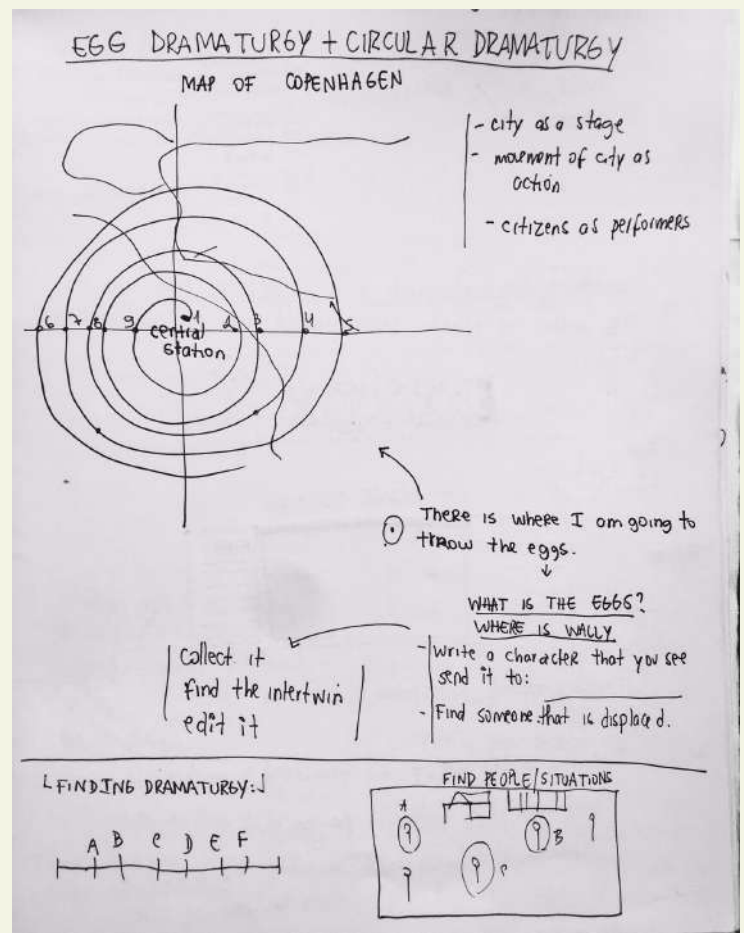 EGG DRAMATURGY + CIRCULAR DRAMATURGY
MAP OF COPENHAGEN
- city as a stage
- movement of city as
action
- citizens as performers
6 7 8 9 1 2 3 4 5
central
station
There is where I am going to
throw the eggs.
WHAT IS THE EGGS?
WHERE IS WALLY
- Write a character that you see
send it to:
- Find someone that is displaced.
Collect it
find the intertwin
edit it
FINDING DRAMATURGY:
A B C D E F
FIND PEOPLE/SITUATIONS
A
B